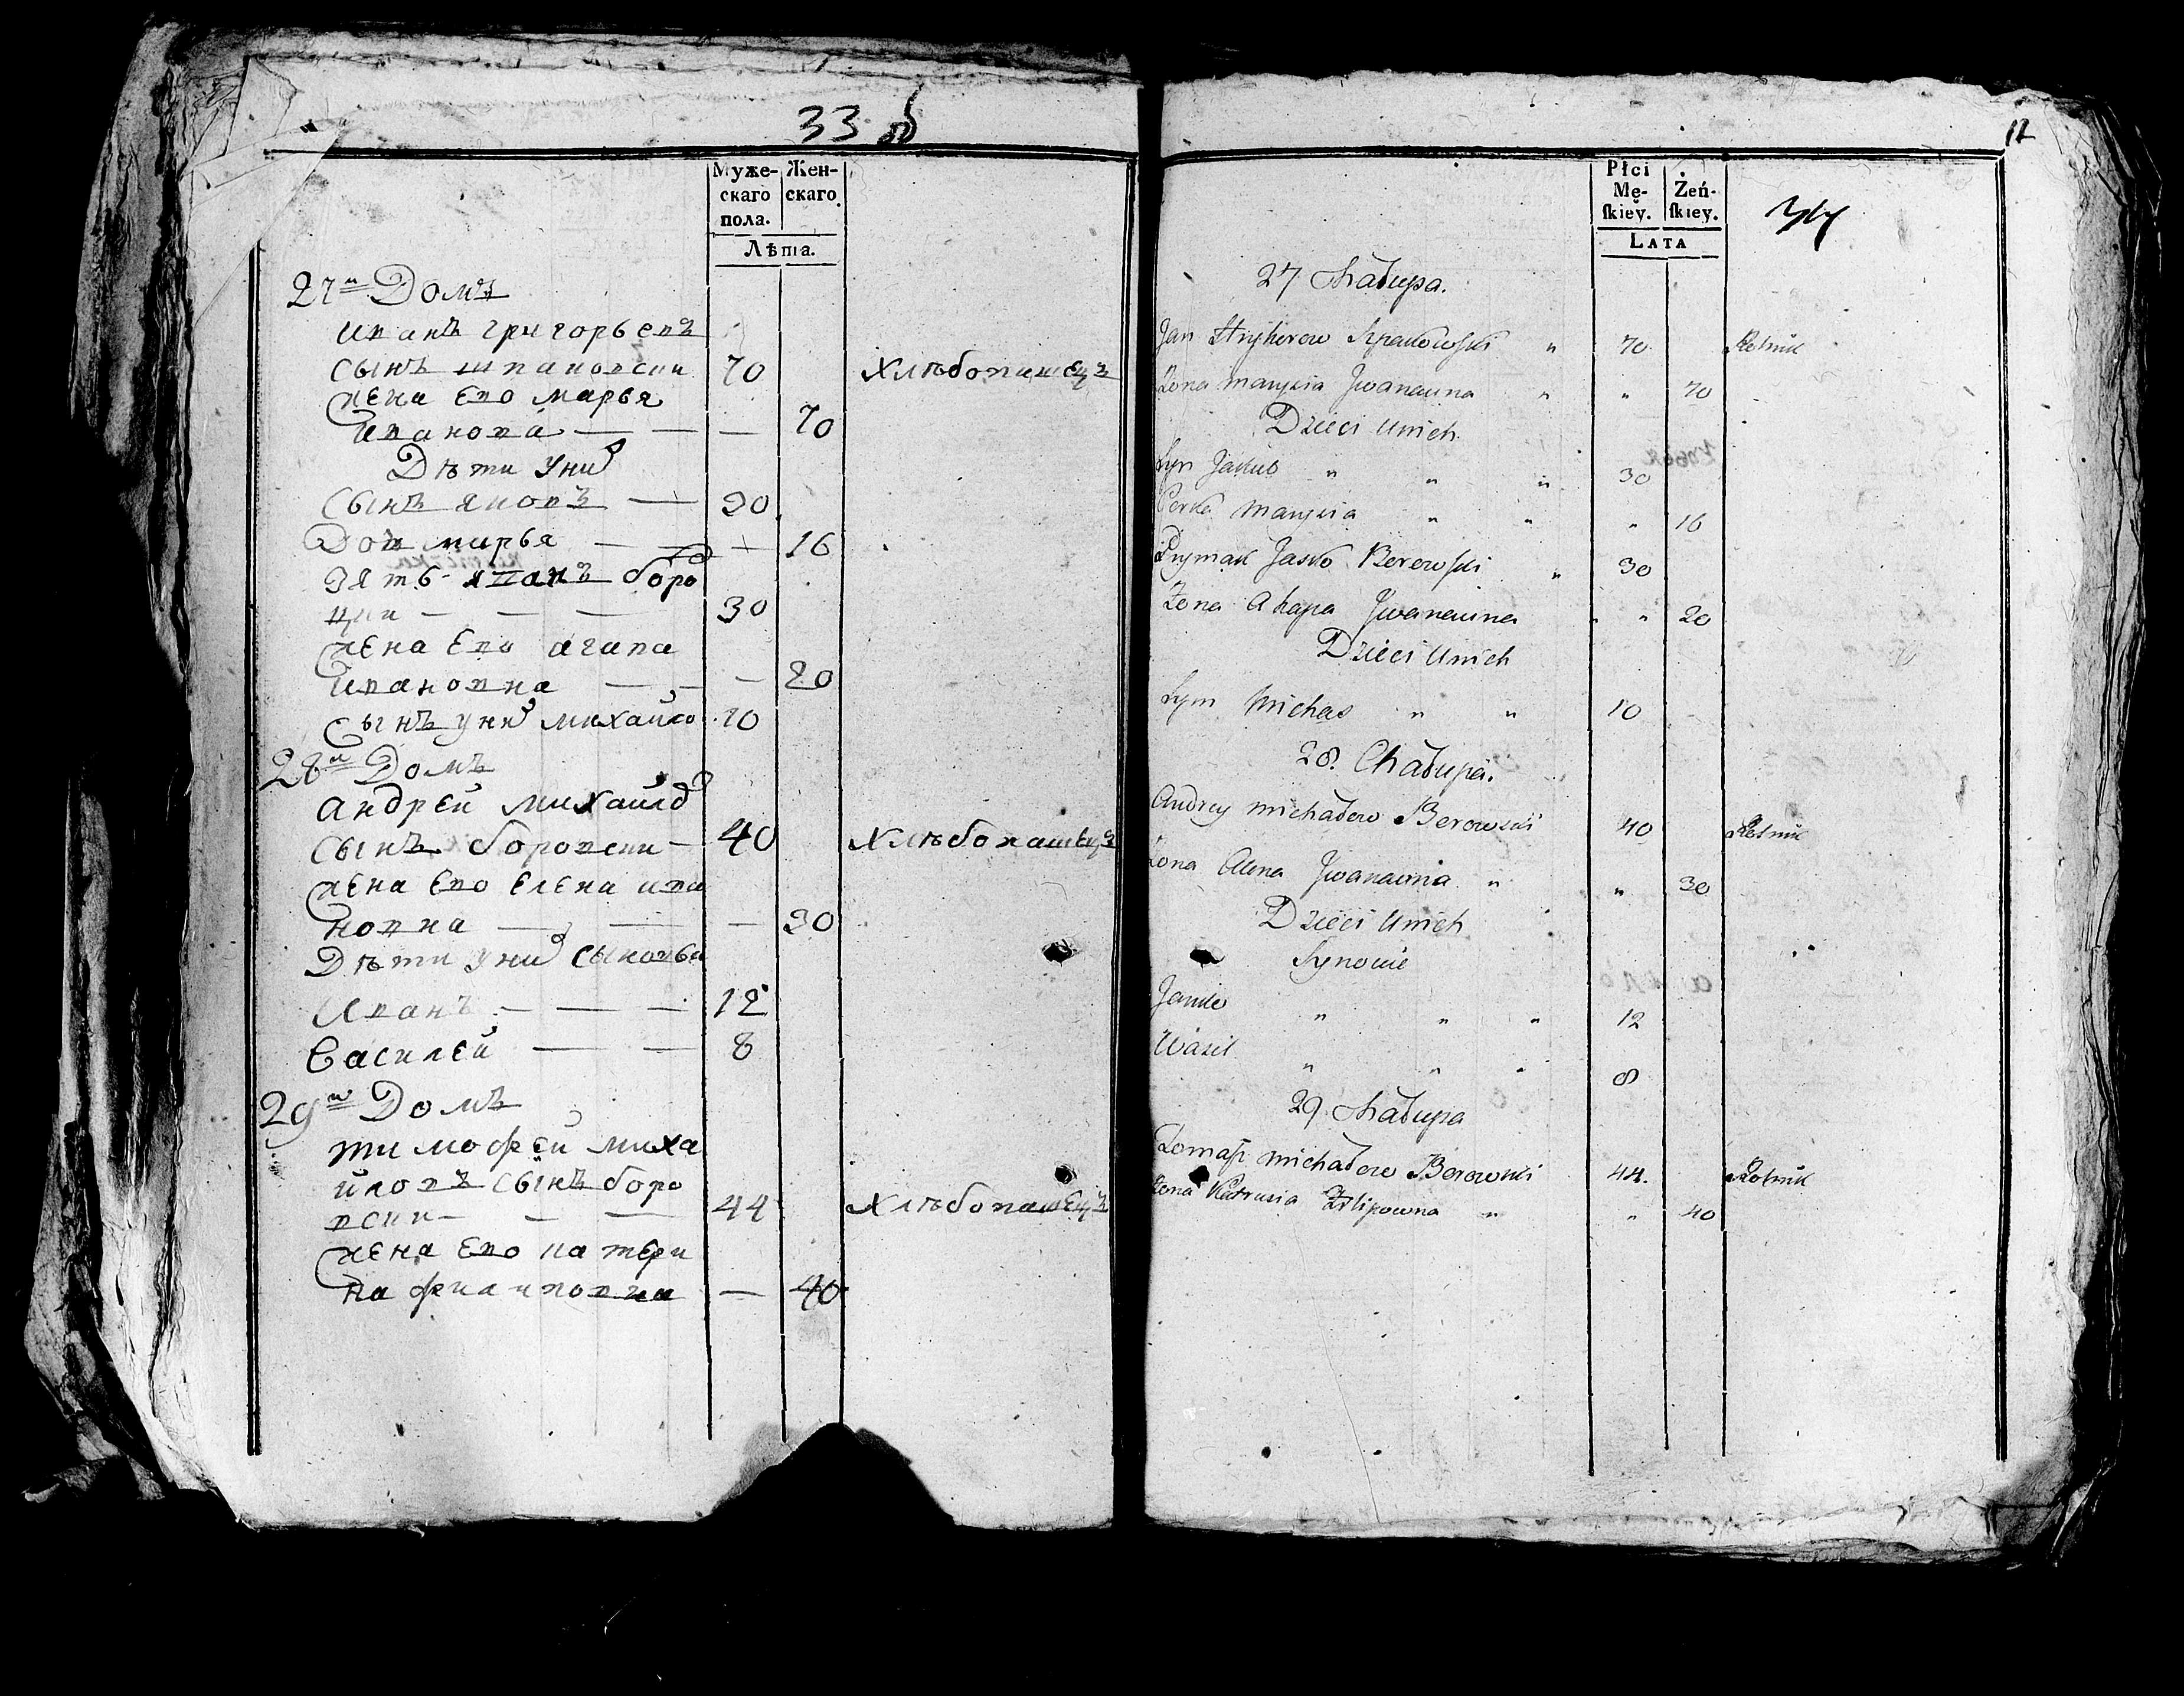 33 об
Муже-
скаго
пола.
Жен-
скаго
Лѣта.
27й Домъ
иванъ григорьевъ
сынъ шпановски 70 хлѣбопашецъ
жена ево марья
иванова — — — 70
Дѣти уних
сынъ яковъ — 30
Доч марья — — — 16
зять иванъ боро
— — — 30
жена ево агапа
ивановна — — — 20
сынъ уних михайло 10
28й Домъ
андрей михайлов
сынъ боровски — 40 хлѣбопашецъ
жена ево елена ива
новна — — — 30
Дѣти уних сыновья
иванъ — — — 12
василей — — 8
29й Домъ
тимофей миха
йловъ сынъ боро
вски — — — 44 хлѣбопашецъ
жена ево катери
на филиповна — 40
12
Płci
Mę-
skiey.
Żeń-
skiey.
Lata
34
27. Chałupa.
Jan Hryhorow Szpakowski " 70 Rolnik
Żona Marysia Jwanauna " " 70
Dzieci Unich
Syn Jakub " " " 30
Corka Marysia " " " 16
Prymak Jasko Borowski " 30
Żona Ahapa Jwanauna " " 20
Dzieci Unich
Syn Michas " " 10
28. Chałupa.
Andrey Michałow Borowski 40 Rolnik
Żona Alena Jwanauna " " 30
Dzieci Unich
Synowie
Janko " " " 12
Wasil " " " 8
29. Chałupa
Tomasz Michałow Borowski 44. Rolnik
Żona Katrusia Filipowna " " 40